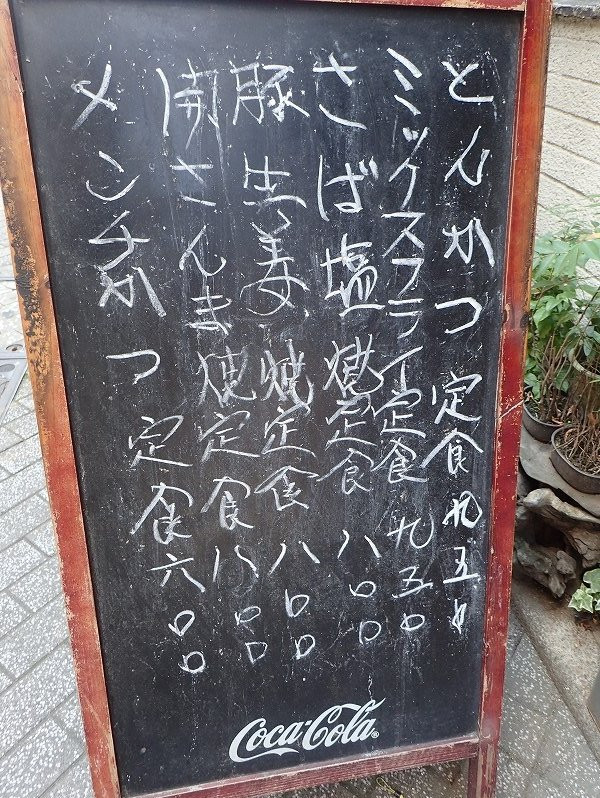 とんかつ定食九五〇
ミックスフライ定食九五〇
さば塩焼定食八〇〇
豚生姜焼定食八〇〇
開さんま焼定食八〇〇
メンチかつ定食六〇〇
Coca-Cola